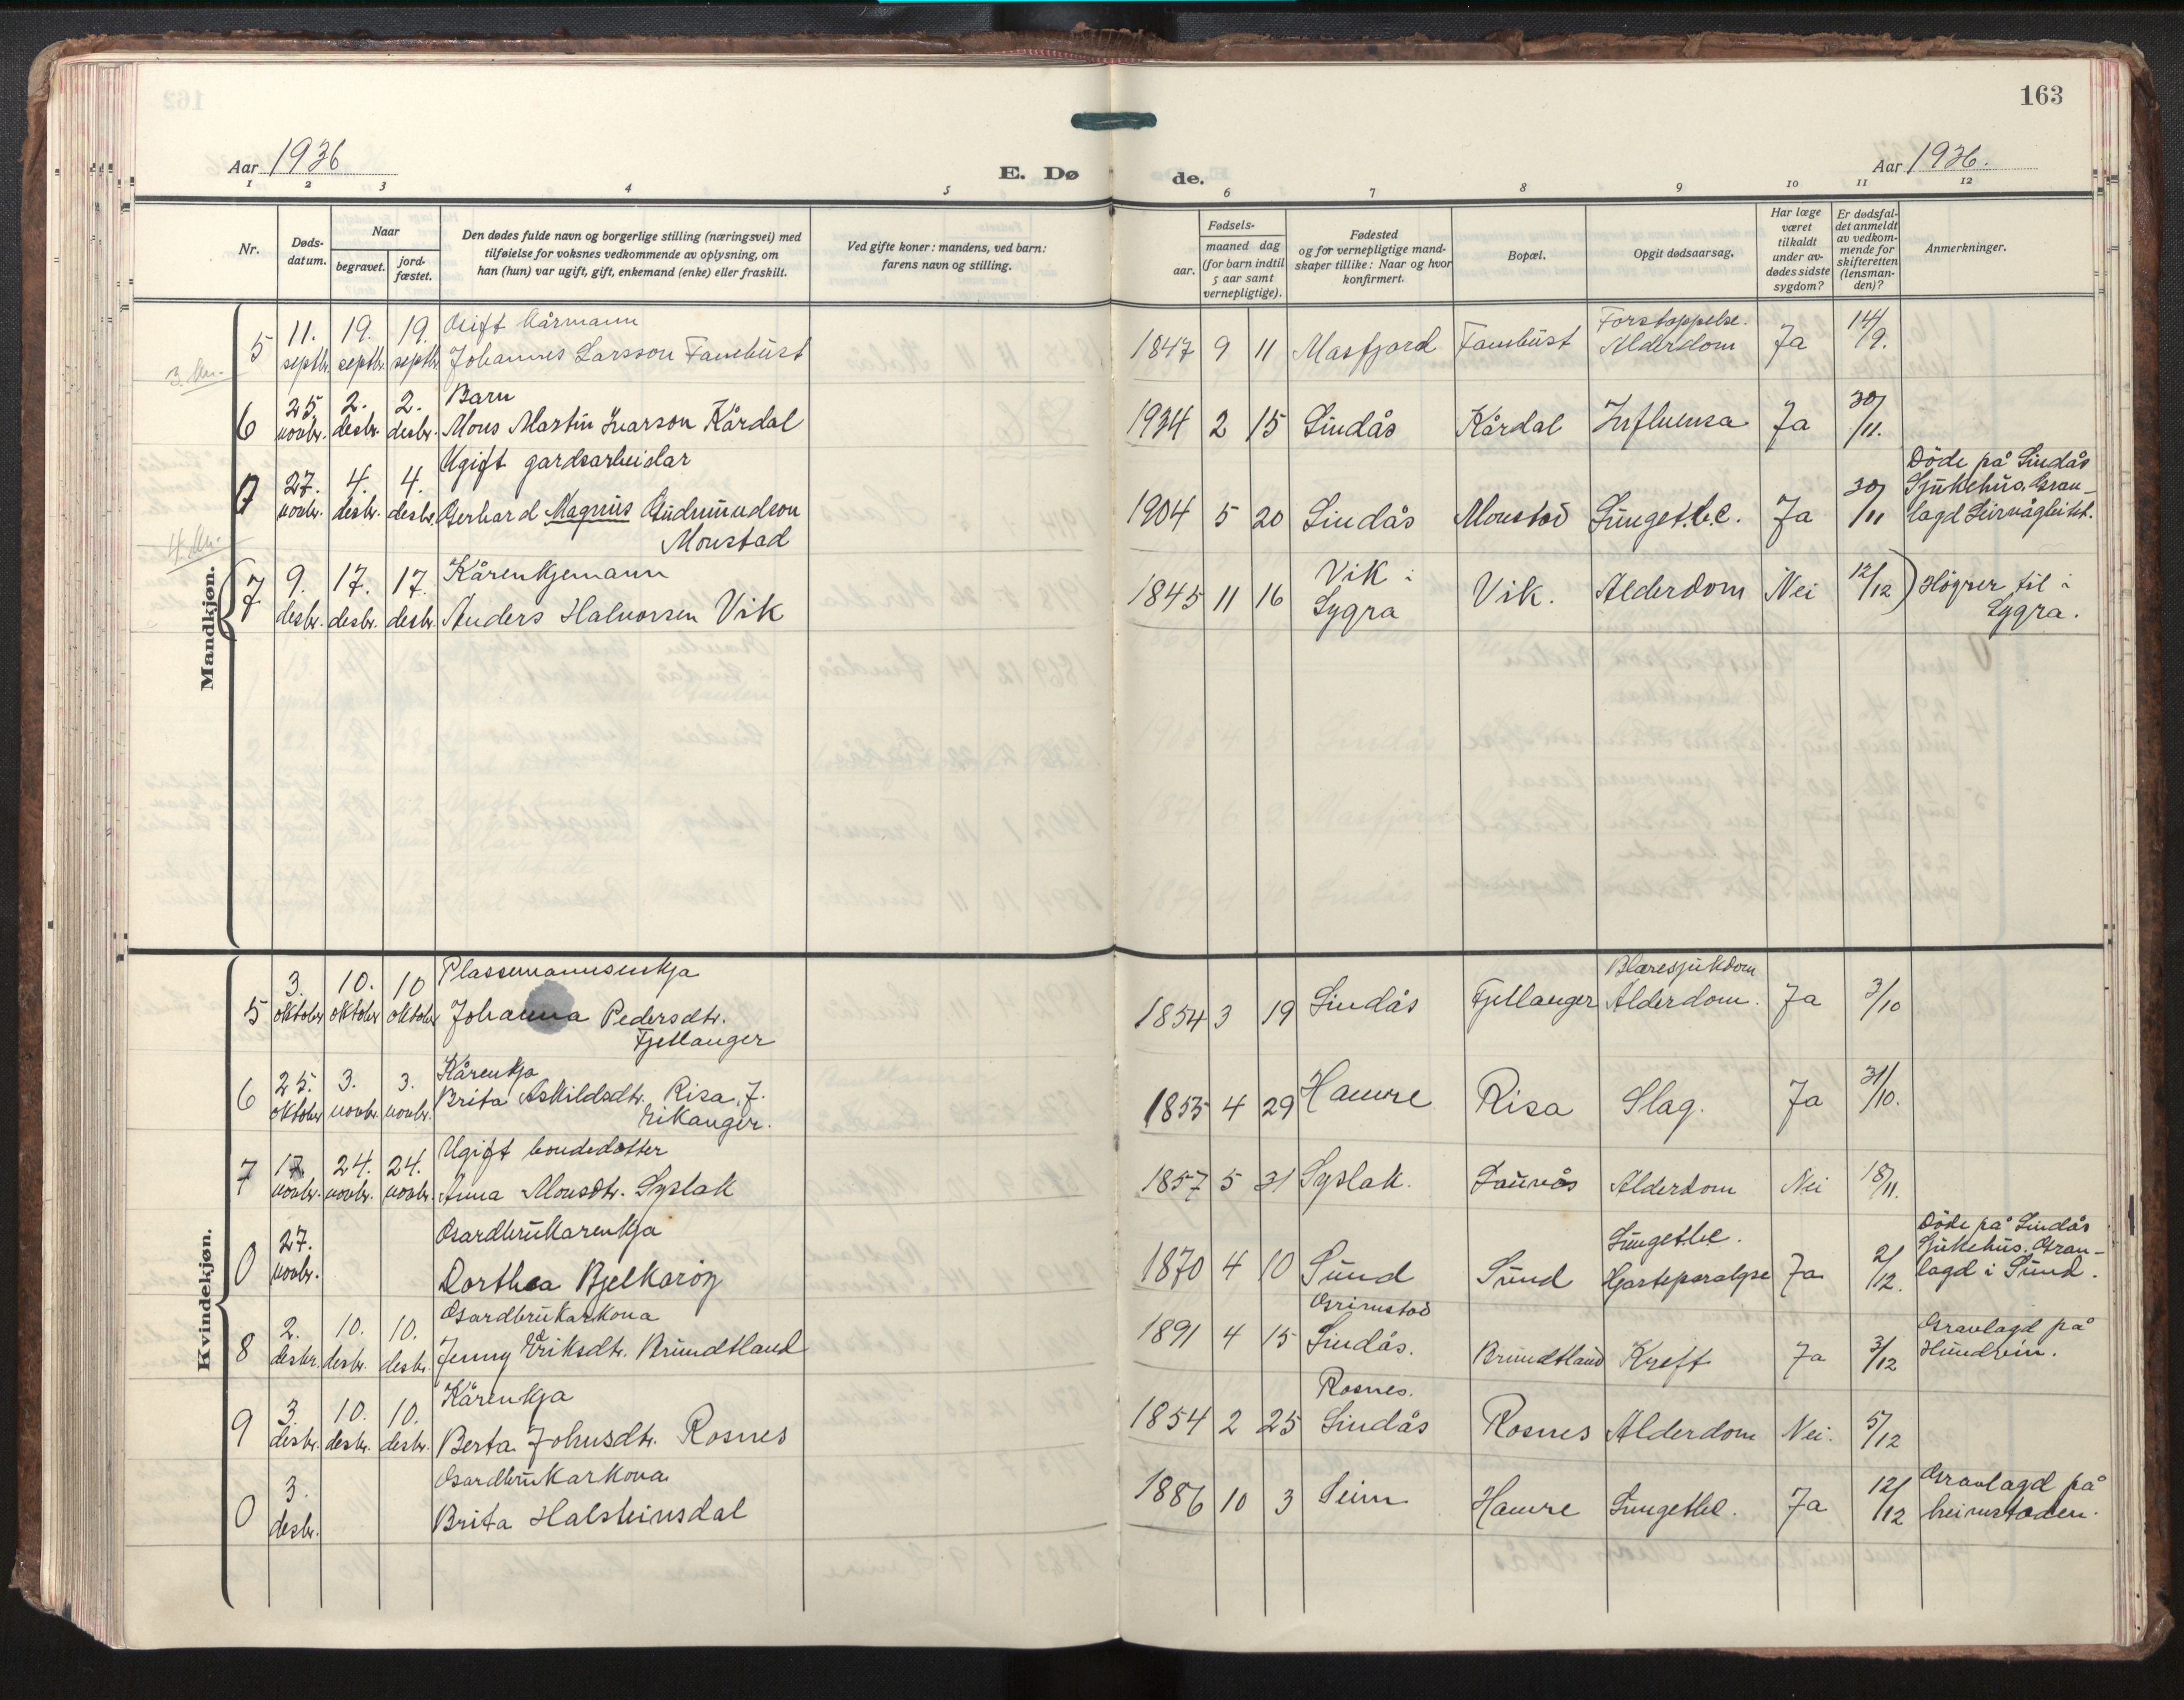 163
Aar 1936
E. Dø de.
Aar 1936.
1 2 3 4 5 6 7 8 9 10 11 12
Nr.
Døds-
datum.
Naar
begravet.
jord-
fæstet.
Den dødes fulde navn og borgerlige stilling (næringsvei) med
tilføielse for voksnes vedkommende av oplysning, om
han (hun) var ugift, gift, enkemand (enke) eller fraskilt.
Ved gifte koner: mandens, ved barn:
farens navn og stilling.
Fødsels-
aar.
maaned dag
(for barn indtil
5 aar samt
vernepligtige).
Fødested
og for vernepligtige mand-
skaper tillike: Naar og hvor
konfirmert.
Bopæl.
Opgit dødsaarsag.
Har læge
været
tilkaldt
under av-
dødes sidste
sygdom?
Er dødsfal-
det anmeldt
av vedkom-
mende for
skifteretten
(lensman-
den)?
Anmerkninger.
Mandkjøn.
Gift kårmann Forstoppelse.
5 11. septbr. 19. septbr. 19. septbr. Johannes Larsson Fanebust 1847 9 11 Masfjord Fanebust Alderdom Ja 14/9.
Barn
6 25. novbr. 2. desbr. 2. desbr. Mons Martin Ivarson Kårdal 1934 2 15 Lindås Kårdal Influensa Ja 30/11.
Ugift gardsarbeidar Døde på Lindås
27. novbr. 4. desbr. 4. desbr. Gerhard Magnus Gudmundson 1904 5 20 Lindås Monstad Lungetbc. Ja 30/11 Sjukehus. Grav-
Monstad lagd
Kårenkjemann Vik i
7 9. desbr. 17. desbr. 17. desbr. Anders Halvorsen Vik 1845 11 16 Lygra Vik. Alderdom Nei 12/12 Høyrer til i
Lygra.
Kvindekjøn.
Plassemannsenkja Blæresjukdom
5 3. oktober 10. oktober 10 oktober Johanna Pedersdtr. 1854 3 19 Lindås Fjellanger Alderdom. Ja 3/10
Fjellanger
Kårenkja
6 25. oktober 3. novbr. 3. novbr. Brita Askildsdtr. Risa, f. 1853 4 29 Hamre Risa Slag. Ja 31/10.
Eikanger.
Ugift bondedotter
7 17 novbr. 24. novbr. 24. novbr. Anna Monsdtr. Syslak 1857 5 31 Syslak. Launås Alderdom Nei 18/11.
Gardbrukarenkja Lungetbc. Døde på Lindås
0 27. novbr. Dorthea Bjelkarøy 1870 4 10 Sund Sund Hjarteparalyse Ja 2/12. Sjukehus. Grav-
lagd i Sund.
Gardbrukarkona Grimstad Gravlagd på
8 2. desbr. 10. desbr. 10. desbr. Jenny Eriksdtr. Brundtland 1891 4 15 Lindås. Brundtland Kreft Ja 3/12 Hundvin.
Kårenkja Rosnes.
9 3. desbr. 10. desbr. 10. desbr. Berta Johnsdtr. Rosnes 1854 2 25 Lindås Rosnes Alderdom Nei. 5/12
Gardbrukarkona Gravlagd på
0 3. desbr. Brita Halsteinsdal 1886 10 3 Seim Hamre Lungetbc. Ja 12/12 heimstaden.